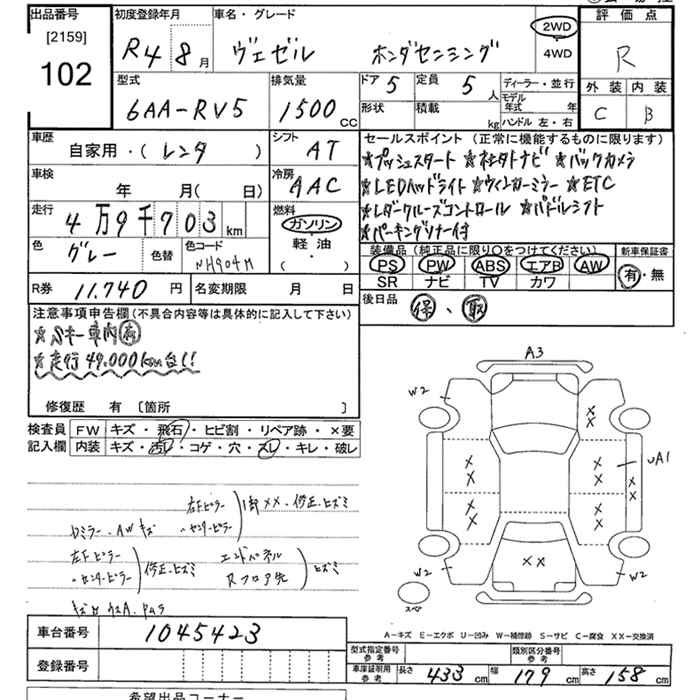 出品番号
[2159]
102
初度登録年月
R4 8月
車名・グレード
ヴェゼル ホンダセンシング
2WD
4WD
評価点
R
外装 内装
C B
型式
6AA-RV5
排気量
1500cc
ドア 5
形状
定員 5人
積載 kg
ディーラー・並行
モデル年式 年
ハンドル 左・右
車歴
自家用・(レンタ)
シフト AT
車検 年 月(日)
冷房 AAC
走行 4万9千703km
燃料
ガソリン
軽油・
( )
色 グレー
色替
色コード NH904M
R券 11.740円
名変期限 月 日
セールスポイント(正常に機能するものに限ります)
★プッシュスタート ★社外ナビ ★バックカメラ
★LEDヘッドライト ★ウインカーミラー ★ETC
★レダークルーズコントロール ★パドルシフト
★パーキングソナー付
装備品(純正品に限り○をつけてください)
PS PW ABS エアB AW
SR ナビ TV カワ
新車保証書
有・無
後日品 保、取
注意事項申告欄(不具合内容等は具体的に記入して下さい)
★Sキー車内有
★走行49.000km台!!
修復歴 有 [箇所 ]
検査員記入欄
FW キズ・飛石・ヒビ割・リペア跡・×要
内装 キズ・汚レ・コゲ・穴・スレ・キレ・破レ
右Fピラー
〃センターピラー
1部××・修正・ヒズミ
ミラー・AWキズ
左Fピラー
〃センターピラー
修正・ヒズミ
エンドパネル
Rフロア先
ヒズミ
A3
W2
W2
××
××
××
××
××
××
××
××
UA1
W2
W2
スペア
A-キズ E-エクボ U-凹み W-補修跡 S-サビ C-腐食 XX-交換済
車台番号 1045423
登録番号
型式指定番号 参考
類別区分番号 参考
車庫証明用 参考
長さ 433cm 幅 179cm 高さ 158cm
希望出品コーナー